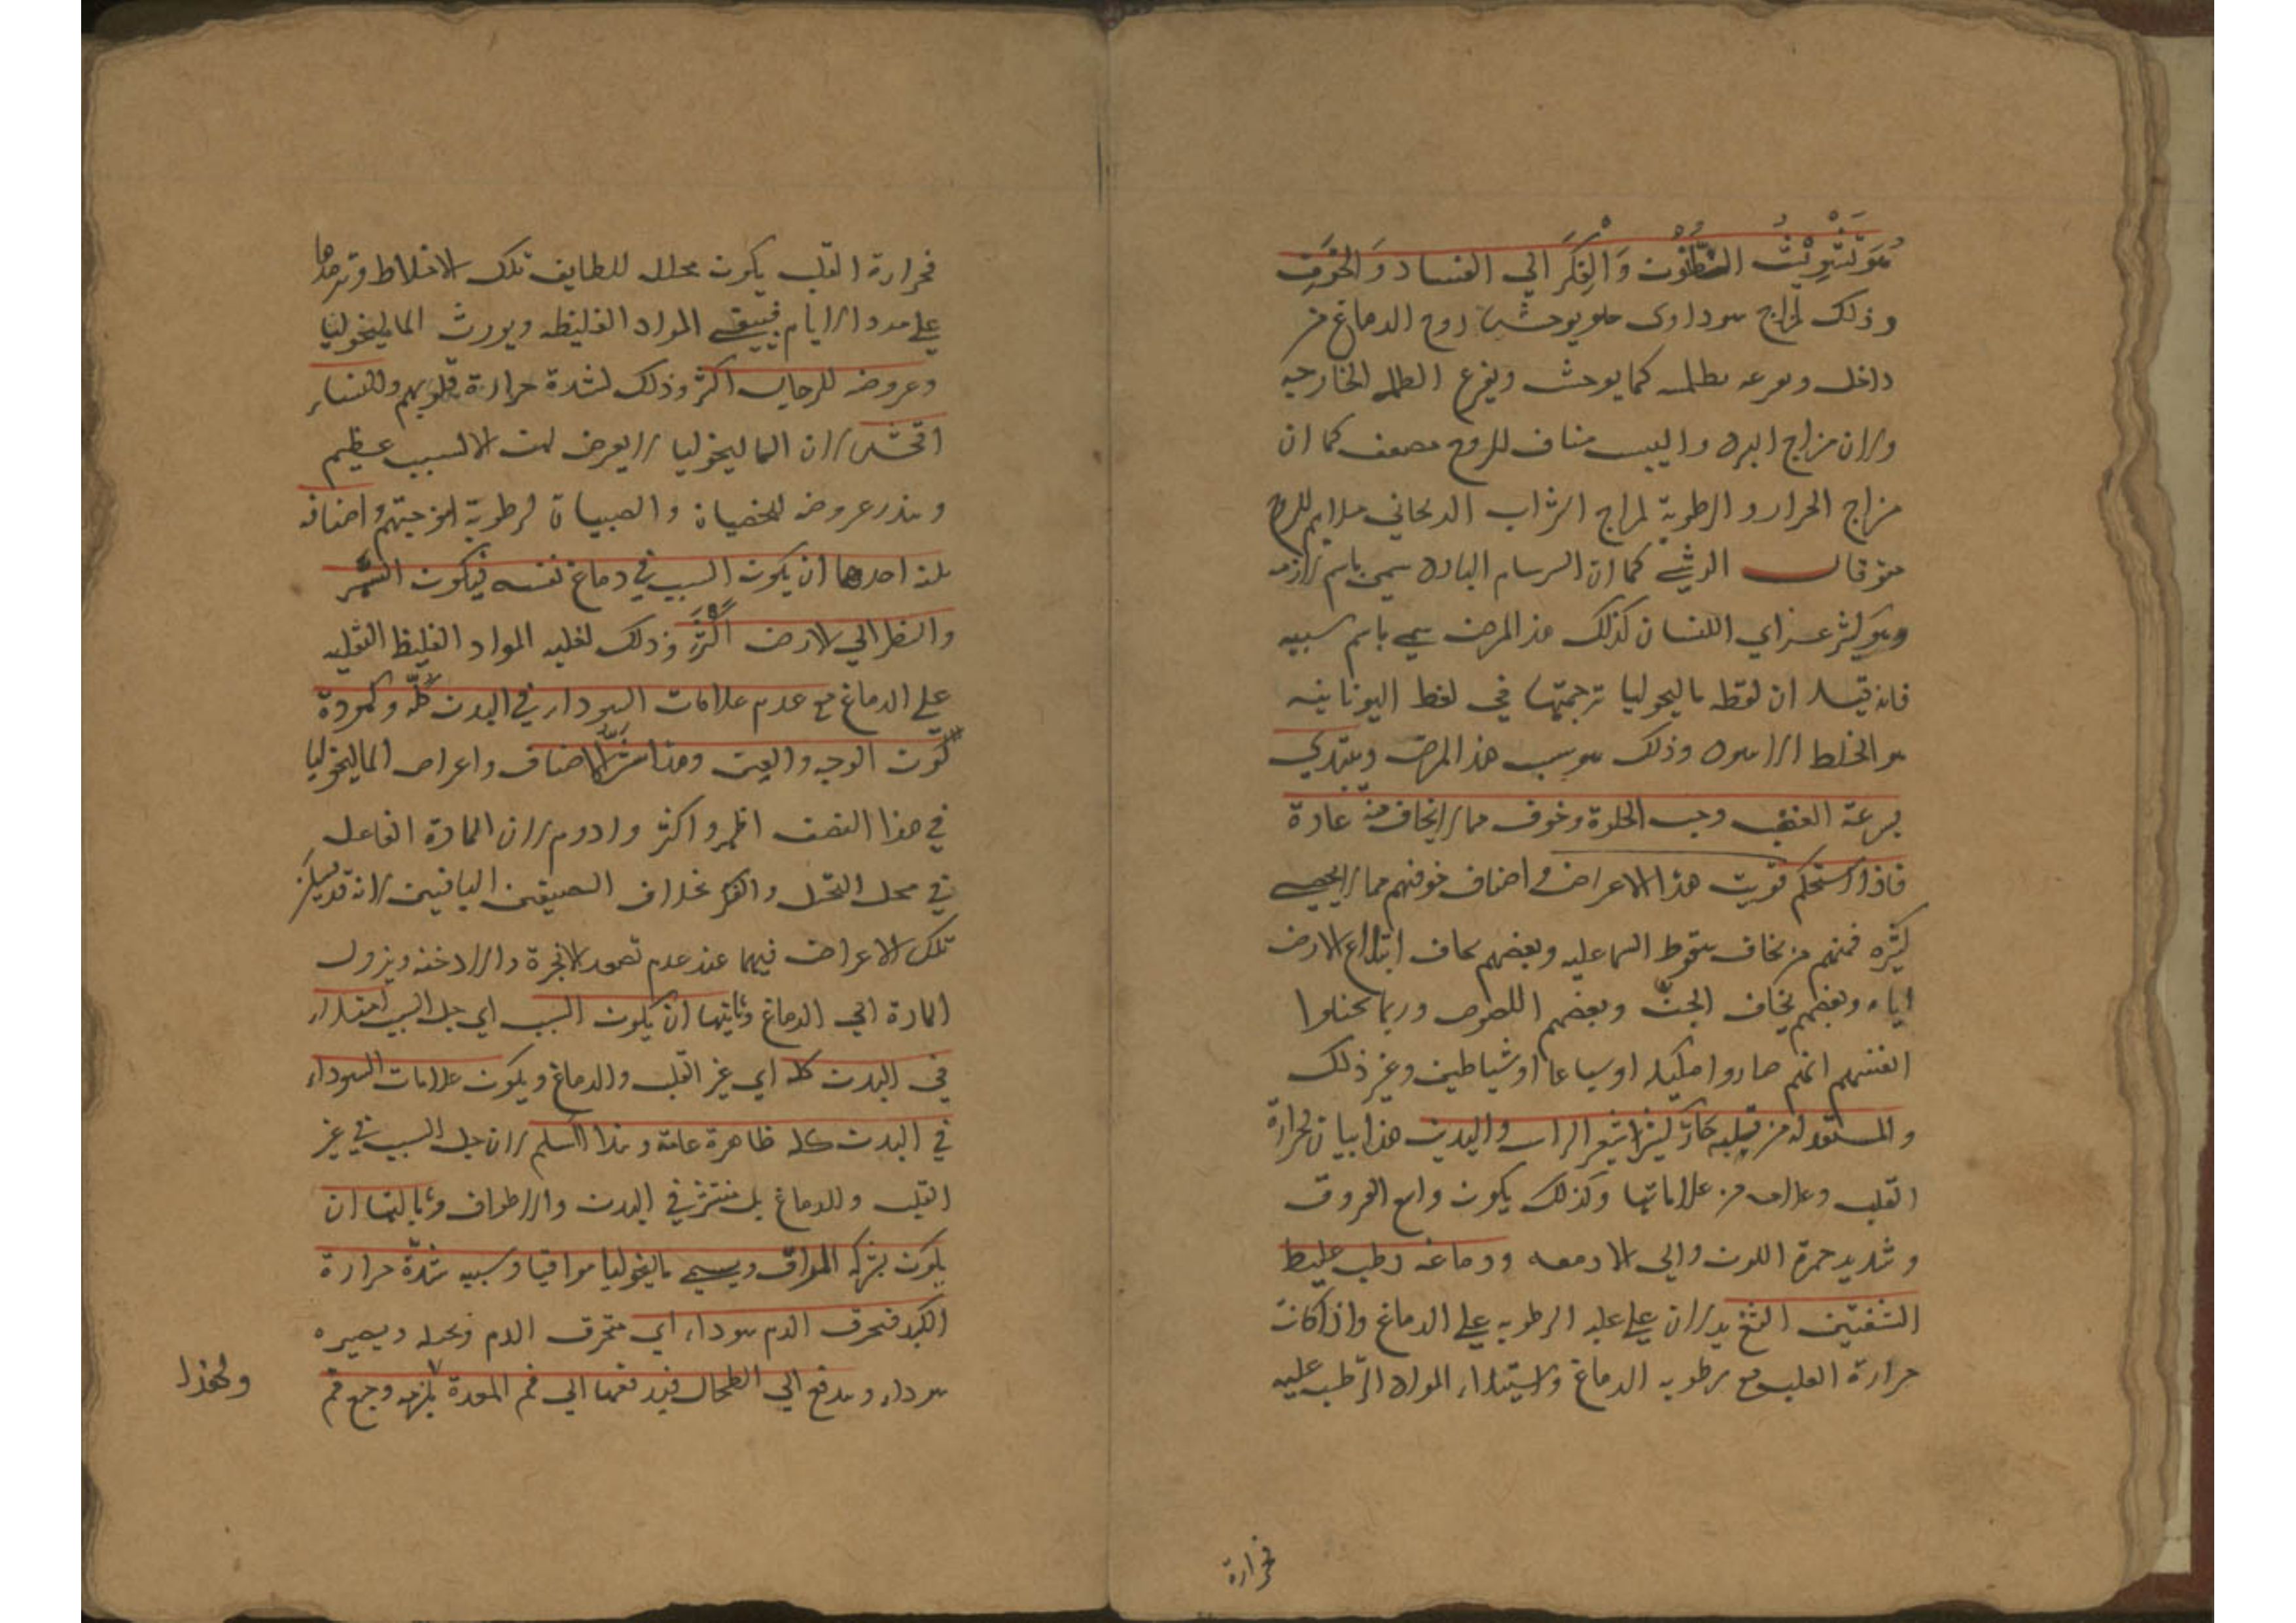 هو تشويش الظنون والفكر الي الفساد والخوف
وذلك لمزاج سوداوي يوحش روح الدماغ من
داخل بظلمه كما يوحش ويفزع الظلمه الخارجيه
ولان مزاج البرد واليبس مناف للروح مضعف كما ان
مزاج الحرار والرطوبة لمزاج الشراب الريحاني ملايم للروح
الرئيس كما ان السرسام البارد سمي باسم لازمه
وهو ليثرغس اي النسيان كذلك هذ المرض سمي باسم سببه
فانه قيل ان لفظه ماليخوليا ترجمتها في لغط اليونانيه
هو الخلط الاسود وذلك هو سبب هذ المرض ويبتدي
بسرعة الغضب وحب الخلوة وخوف مما لايخاف منه عادة
فاذا استحكم قويت هذا الاعراض واصناف خوفهم مما لايحصي
كثره فمنهم من يخاف سقوط السما عليه وبعضهم يخاف ابتلاع الارض
اياه وبعضهم يخاف الجن وبعضهم اللصوص وربما تخيلوا
انفسهم انهم صاروا ملكيه او سباعا او شياطين وغير ذلك
والمستعد له من قلبه حار الراس والبدن هذا بيان لحرارة
القلب من علاماتها وكذلك يكون واسع العروق
وشديد حمرة اللون والي الادمه ودماغه رطب غليظ
الشفتين الثغ يدلان علي غلبه الرطوبه علي الدماغ واذا كانت
حرارة القلب مع رطوبه الدماغ واستيلاء المواد الرطبه عليه
فحرارة
فحرارة القلب يكون محلل للطايف تلك الاخلاط وترمدها
علي مدد الايام فيبقي المواد الغليظه ويورث الماليخوليا
وعروضه للرجال اكثر وذلك لشدة حرارة قلوبهم وللنساء
افحش لان الماليخوليا لايعرض لهن الا لسبب عظيم
ويندر عروضه للخصيان والصبيان لرطوبة امزجتهم واصنافه
ثلثه احدها ان يكون السبب في دماغ نفسه فيكون السهر
والنظر الي الارض اكثر وذلك لغلبه المواد الغليظ الثقليه
علي الدماغ مع عدم علامات السوداء في البدن كله وكمودة
لون الوجه والعين وهذا شر الاصناف واعراض الماليخوليا
في هذا الصنف اظهر واكثر وادوم لان المادة الفاعل
في محل التخيل والفكر بخلاف الصنفين الباقيين لانه قد يسكن
تلك الاعراض فيهما عند عدم تصعد الابخرة والادخنه ويزول
المادة الي الدماغ وثانيها ان يكون السبب اي جل السبب امتلاء
في البدن كله اي غير القلب والدماغ ويكون علامات السوداء
في البدن كله ظاهرة عامة وهذا اسلم لان جل السبب في غير
القلب والدماغ بل منتشر في البدن والاطراف وثالثها ان
يكون بشركه المراق ويسمي ماليخوليا مراقيا وسببه شدة حرارة
الكبد فتحرق الدم سوداء اي تحرق الدم ويصيره
سوداء ويدفع الي الطحال فيدفعها الي فم المعدة يلزمه وجع فم
ولهذا